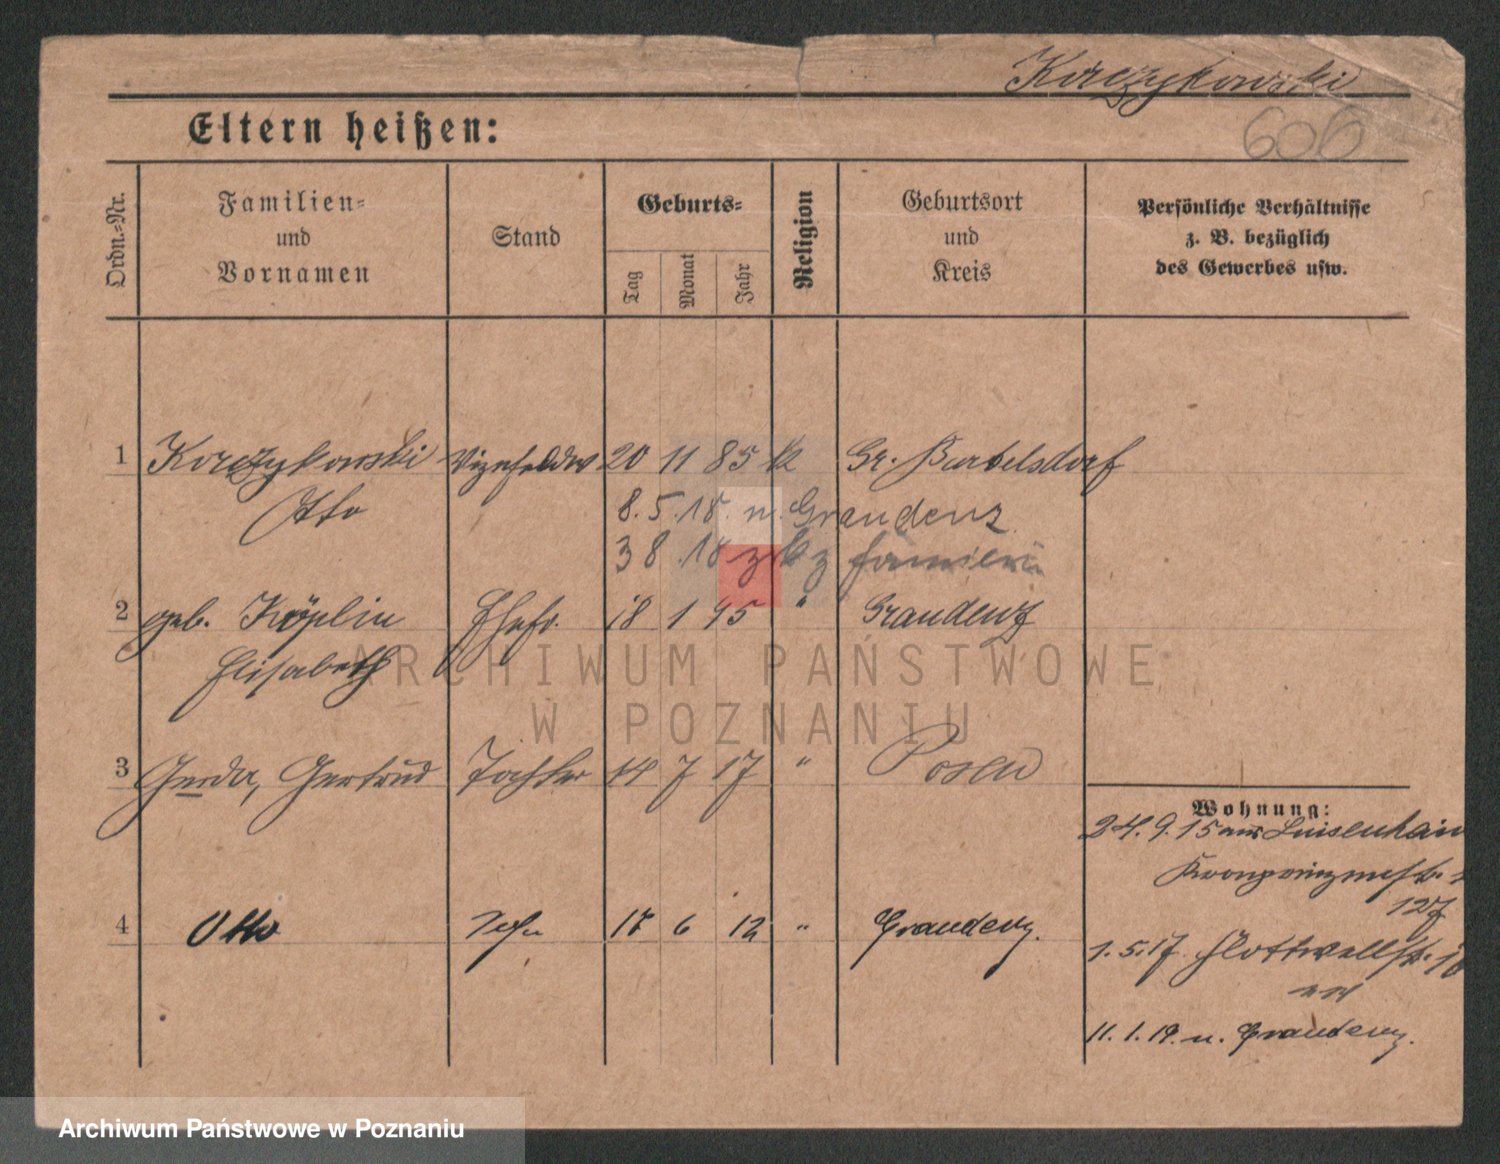 Korczykowski
606
Eltern heißen:
Ordn.-Nr.
Familien-
und
Vornamen
Stand
Geburts-
Tag
Monat
Jahr
Religion
Geburtsort
und
Kreis
Persönliche Verhältnisse
z. B. bezüglich
des Gewerbes usw.
1 Korczykowski Vizefeldw 20 11 85 k Gr. Bartelsdorf
Otto
8. 5. 18. n. Graudenz
3 8 .18 z Familie
2 geb. Köplin Ehefr. 18 1 95 " Graudenz
Elisabeth
3 Gerda, Gertrud Tochter 14 7 17 " Posen
4 Otto Sohn 6 12 " Graudenz.
Wohnung:
24. 9. 15 aus Luisenhain
Kronprinzenstr.
127
1. 5. 17 Flottwellstr.
11. 1. 19. n. Graudenz.
ARCHIWUM PAŃSTWOWE
W POZNANIU
Archiwum Państwowe w Poznaniu